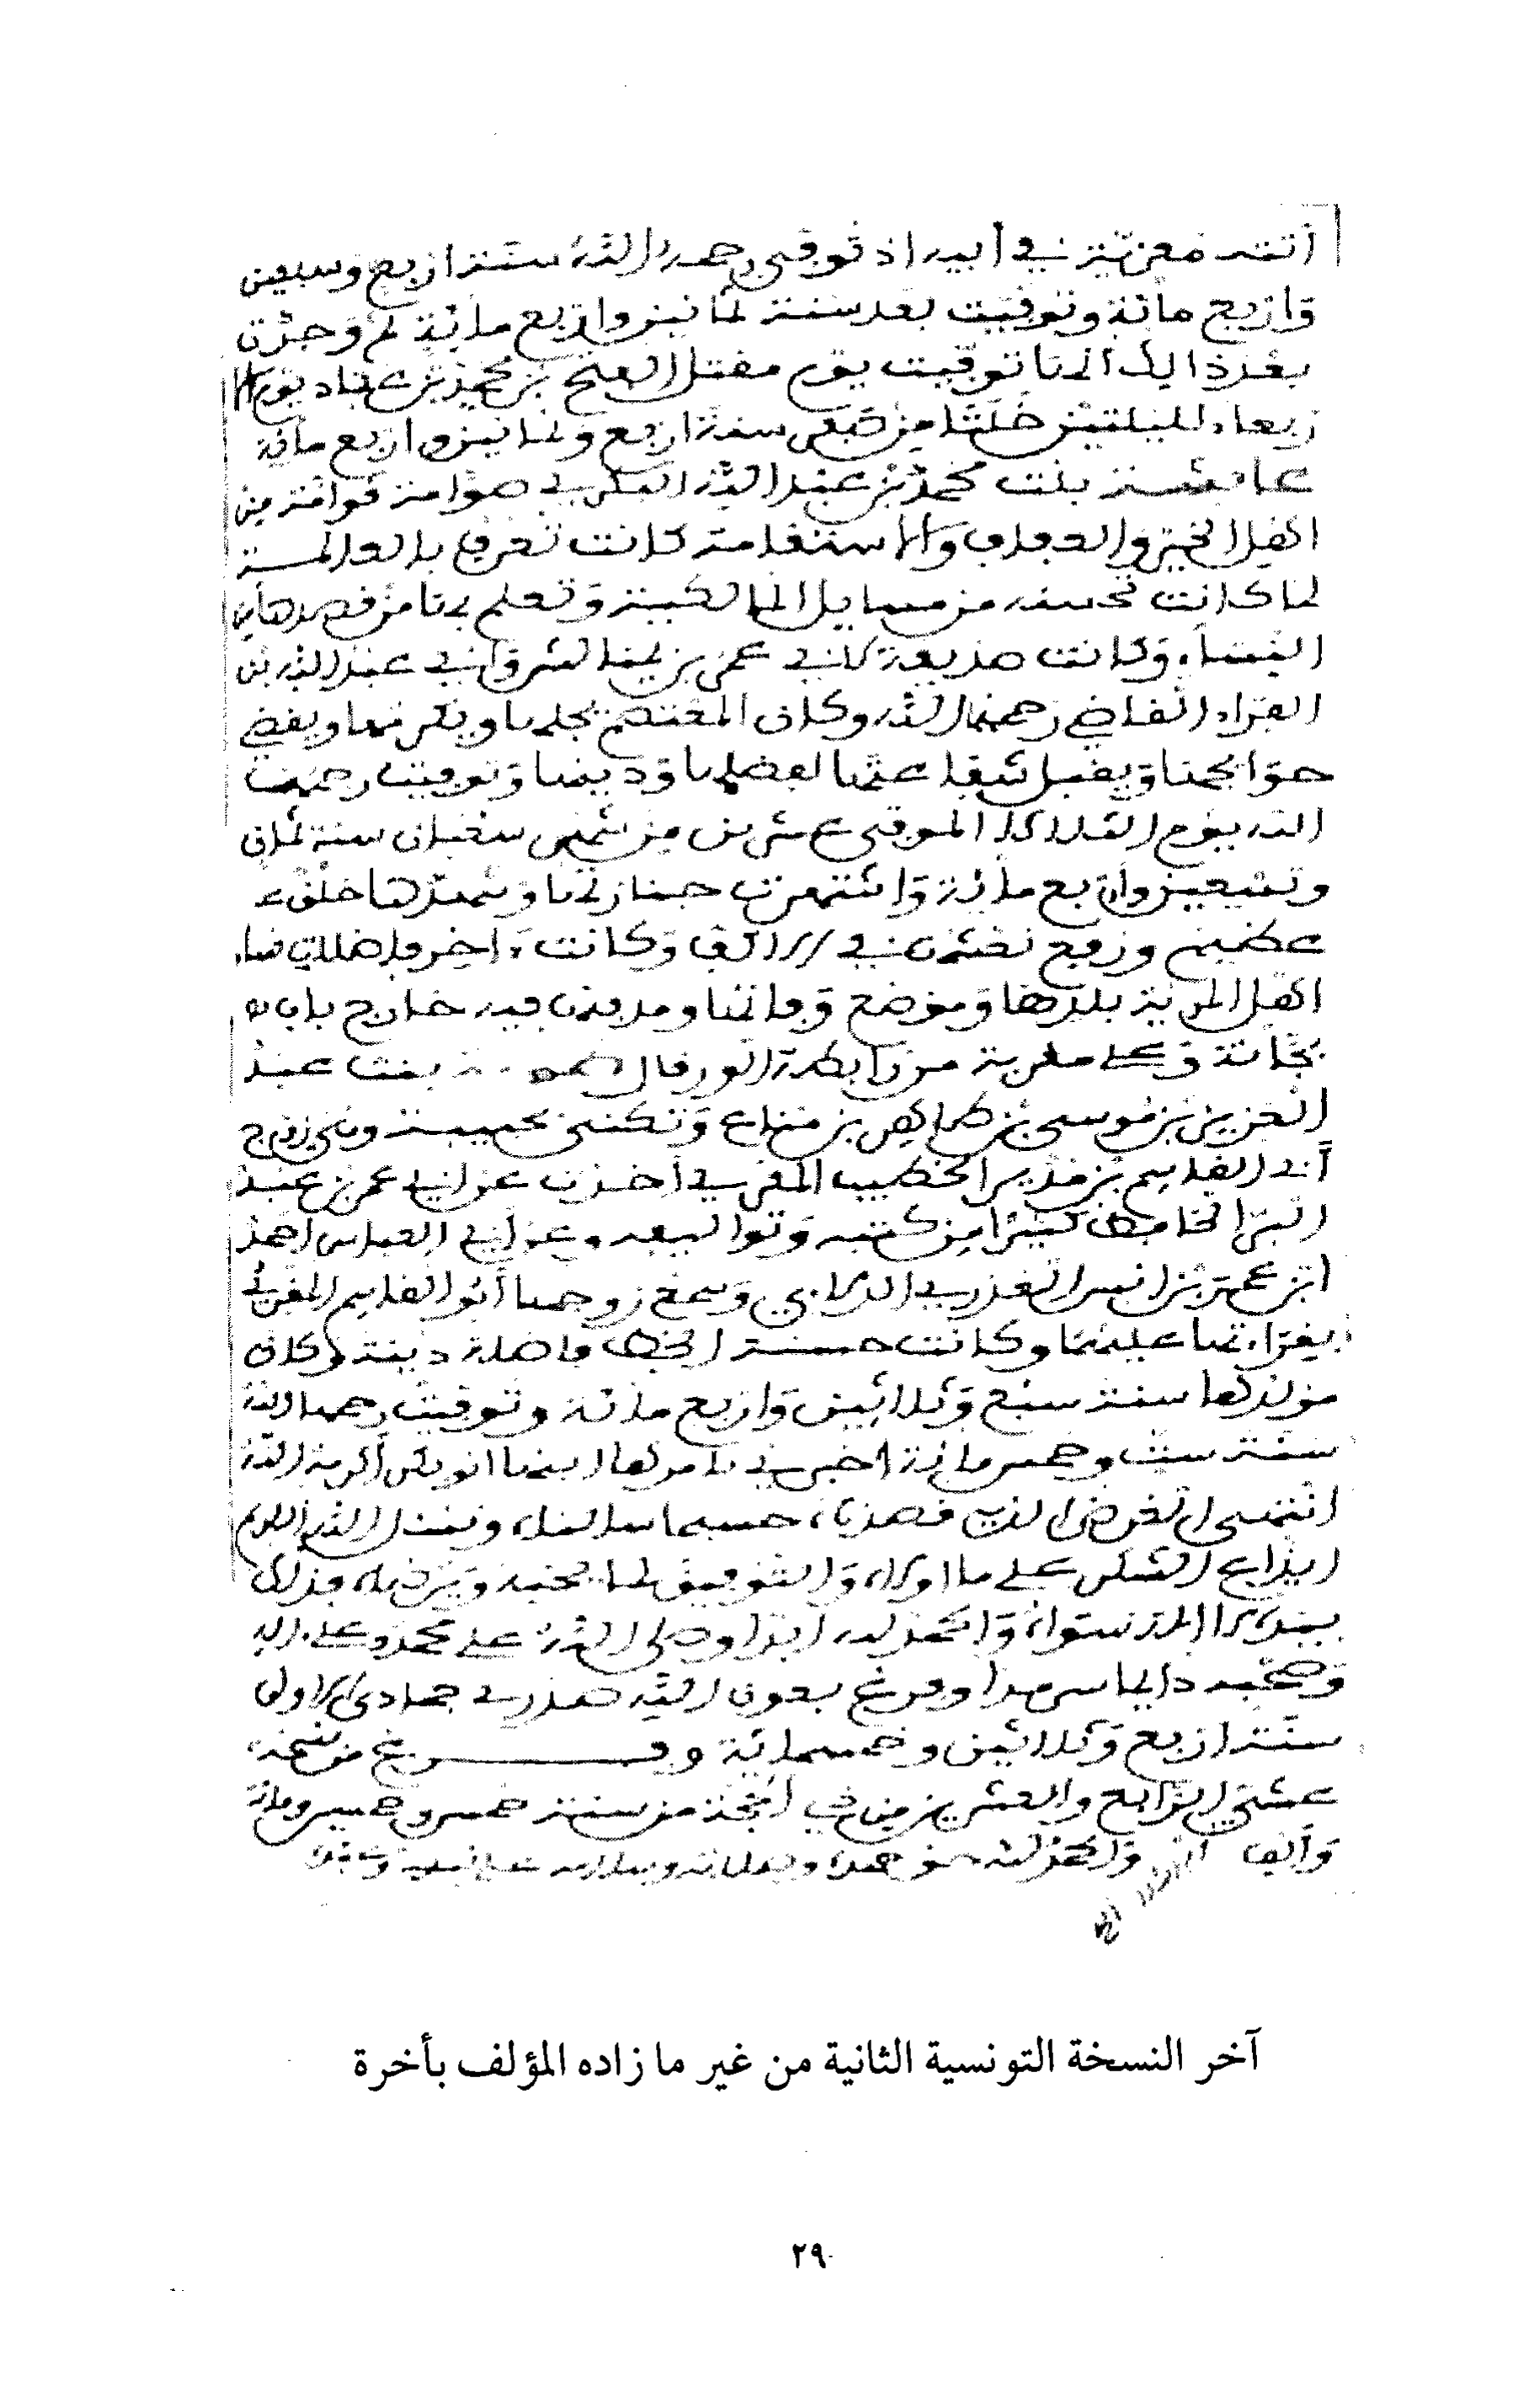 أتته معزية في أبيه إذ توفي رحمه الله سنة أربع وسبعين
وأربع مائة وتوفيت بعد سنة ثمانين وأربع مائة ثم وجدت
بعد ذالك أنها توفيت يوم مقتل الفتح بن محمد بن عباد يوم الا
ربعاء لليلتين خلتا من صفر سنة أربع وثمانين وأربع مائة
عائشة بنت محمد بن عبد الله صوامة قوامة من
أهل الخير والعفاف والاستقامة كانت تعرف بالعالمة
لما كانت تحسنه من مسايل المالكية وتعلم بها من قصدها من
النساء وكانت صديقة لأبي عمر بن الشرقاني عبد الله بن
الفراء القاضي رحمهما الله وكان المعتصم يجلها ويكرمها ويقضي
حوائجها ويقبل شفاعتها لفضلها ودينها وتوفيت رحمها
الله يوم الثلاثاء الموفي عشرين من شهر شعبان سنة ثمان
وتسعين وأربع مائة واشتهرت جنازتها وشهدها خلق
عظيم ورفع نعشها في الأكف وكانت آخر فاضلات نساء
أهل المرية بلدها وموضع وفاتها ومدفنها فيه خارج باب
بجانة وعلى مقربة من رابطة بنت عبد
العزيز بن موسى بن طاهر بن مناع وتكنى حبيبة وهي زوج
أبي القاسم بن مدير الخطيب المقرئ أخذت عن أبي عمر بن عبد
البر الحافظ كثيرا من كتبه وتواليفه وعن أبي العباس أحمد
ابن عمر بن أنس العذري الدلائي وسمع زوجها أبو القاسم المقرئ
بقراءتها عليهما وكانت حسنة الخط فاضلة دينة وكان
مولدها سنة سبع وثلاثين وأربع مائة وتوفيت رحمها الله
سنة ست وخمس مائة أخبرني بأمرها ابنها أبو بكر أكرمه الله
انتهى الغرض الذي قصدناه ونسئل الله الكريم
إيزاع الشكر على ما أولاه والتوفيق لما يحبه ويرضاه فذلك
بيده لا إله سواه والحمد لله أبدا وصلى الله على محمد وعلى آله
وصحبه دائما سرمدا وفرغ بعون الله صدر جمادى الأولى
سنة أربع وثلاثين وخمسمائة وفرغ من نسخه
عشي الرابع والعشرين من ذي الحجة من سنة خمس وخمسين ومائة
وألف والحمد لله
آخر النسخة التونسية الثانية من غير ما زاده المؤلف بأخرة
٢٩